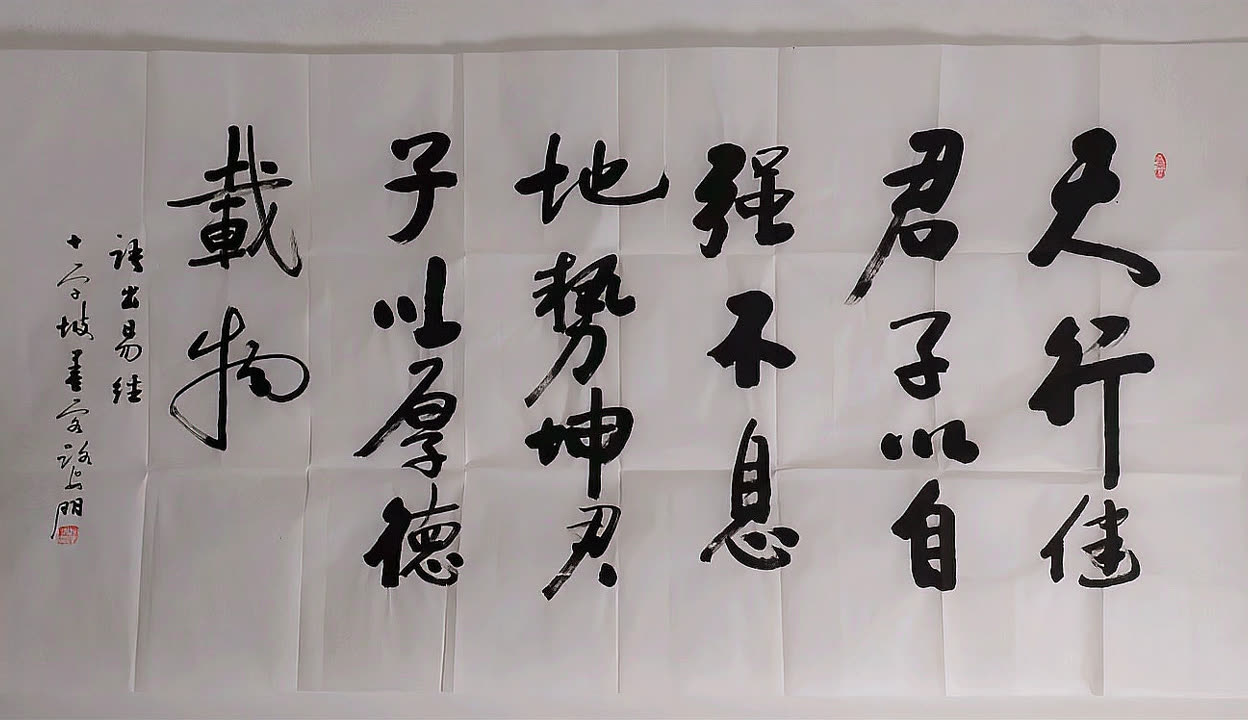 天行健
君子以自
强不息
地势坤君
子以厚德
載物
语出易经
十字坡善客路尚朋